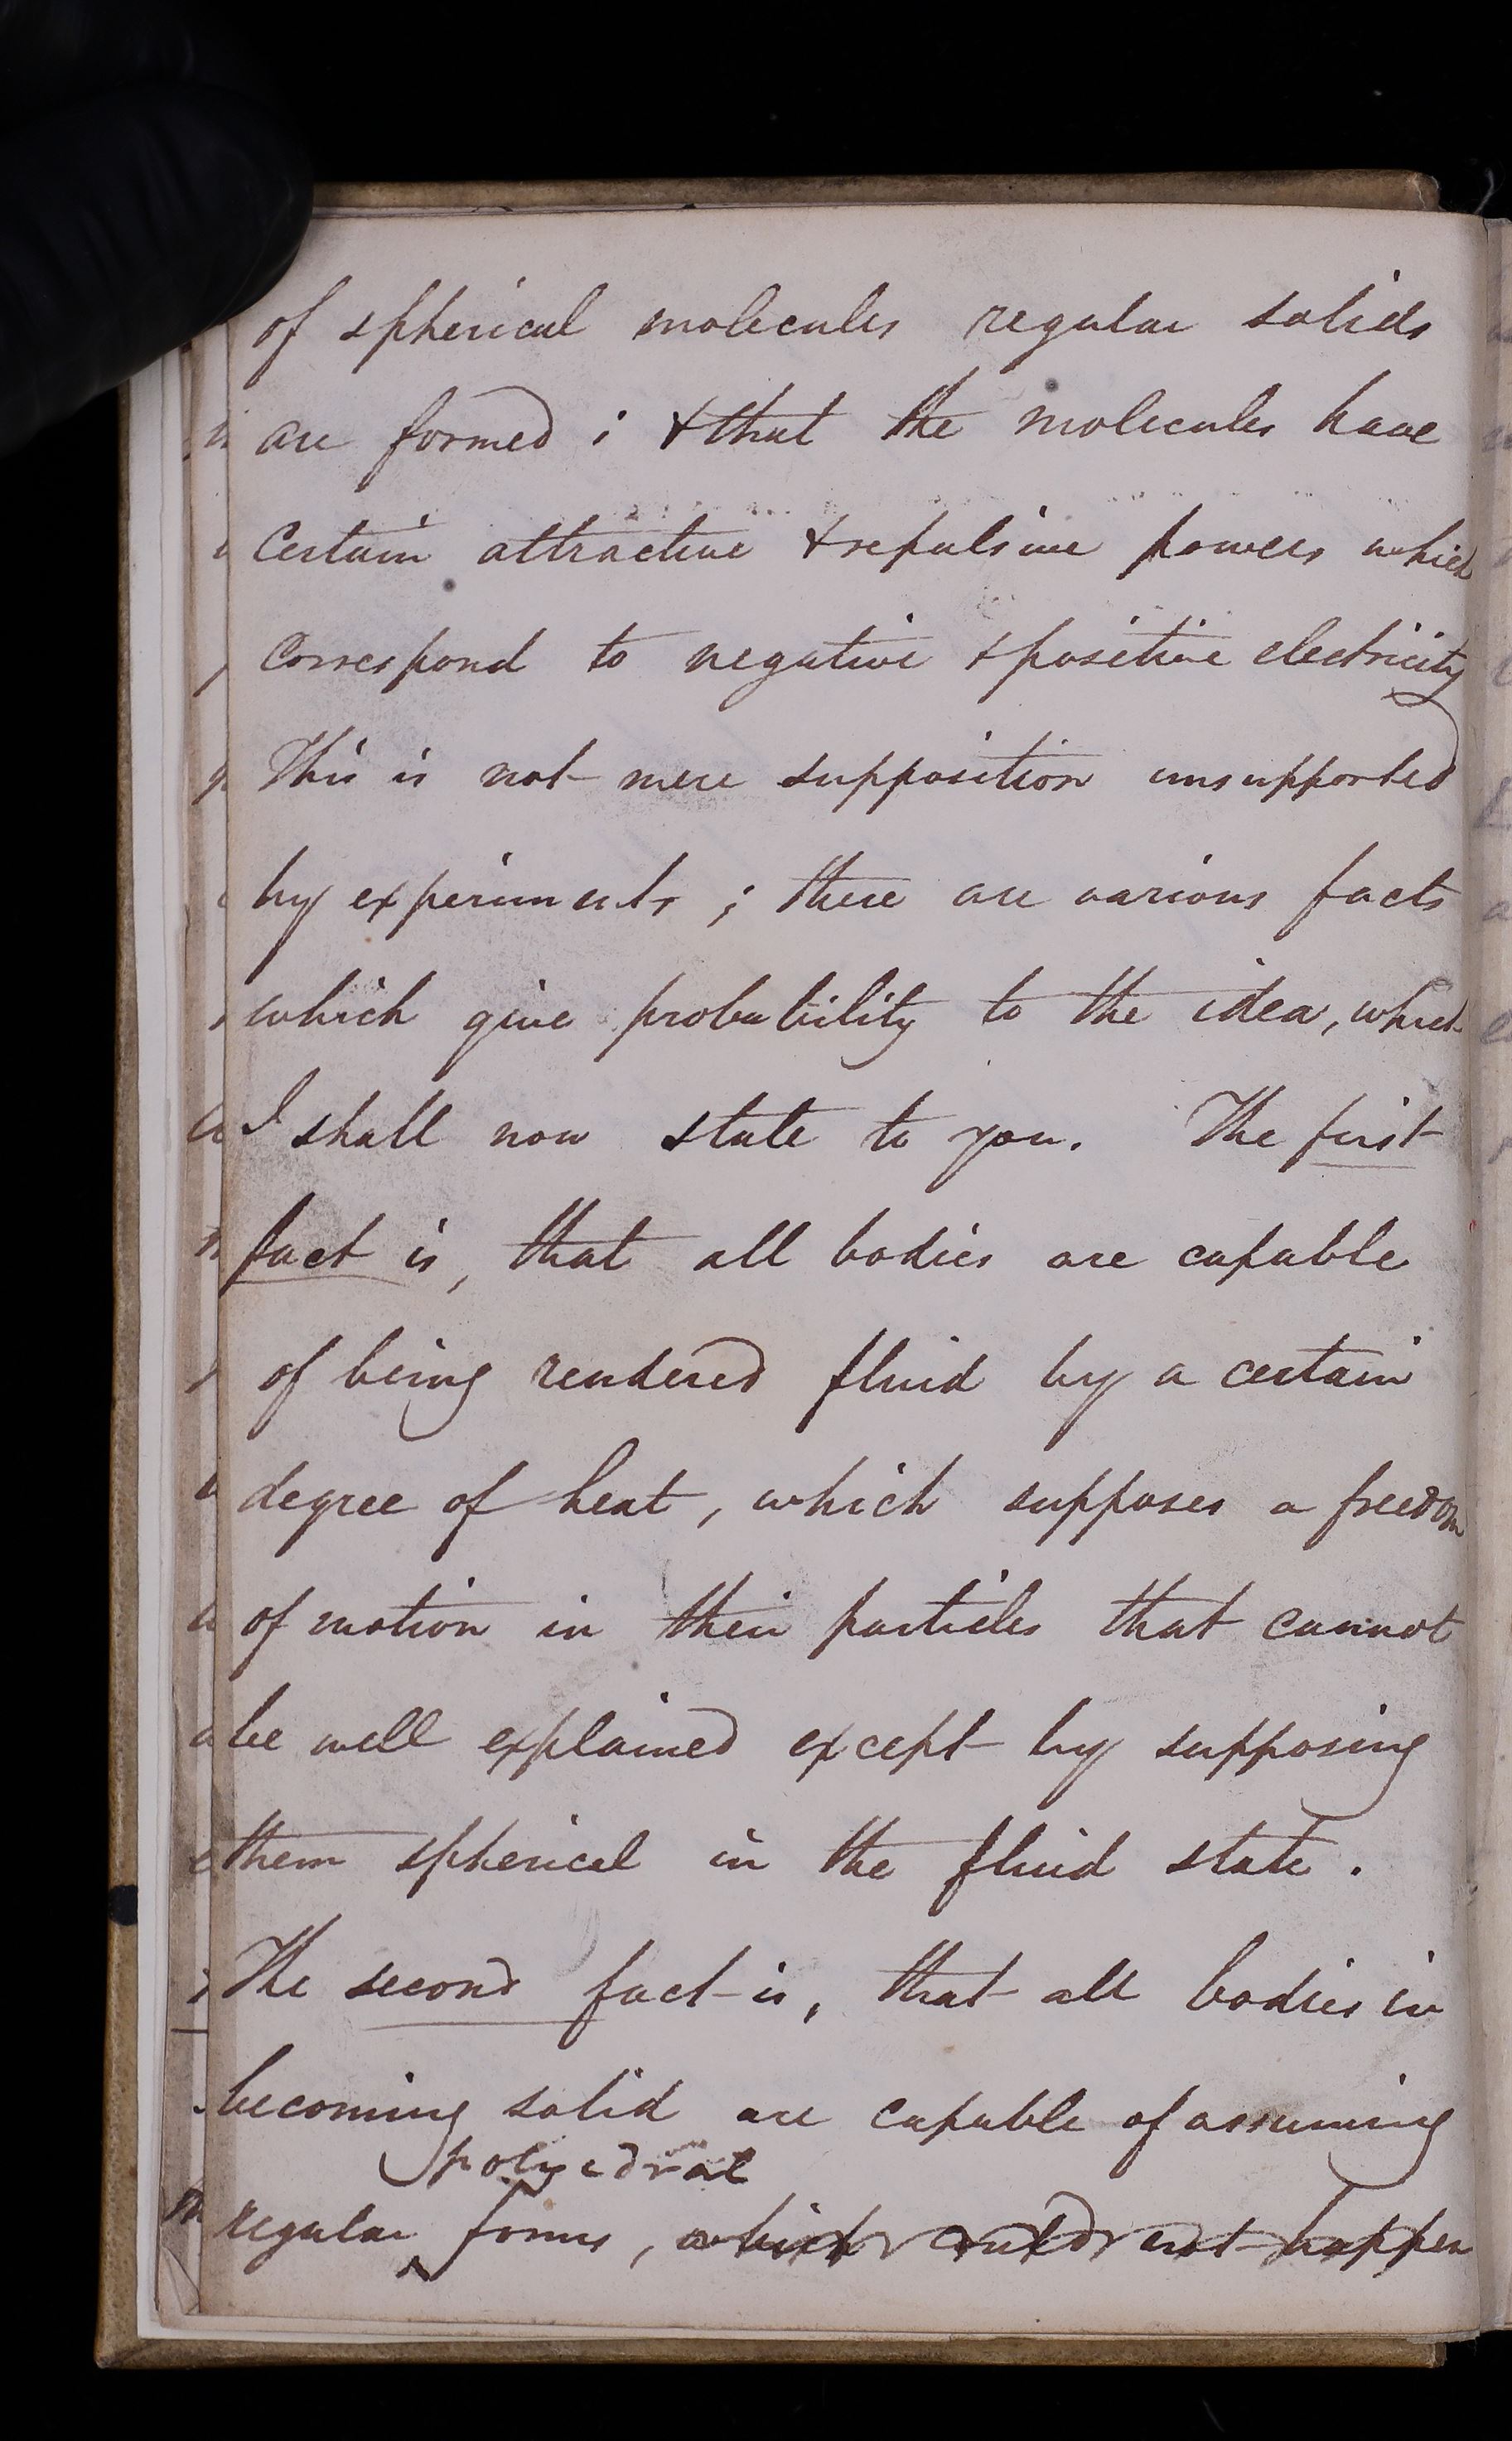 of spherical molecules regular solids
are formed ; & that the molecules have
Certain attractive & repulsive powers which
Correspond to negative & positive electricity
This is not mere supposition unsupported
by experiments ; there are various facts
which give probability to the idea, which
I shall now state to you. The first
fact is, that all bodies are capable
of being rendered fluid by a certain
degree of heat, which supposes a freedom
of motion in their particles that cannot
be well explained except by supposing
them spherical in the fluid state.
The second fact is, that all bodies in
becoming solid are capable of assuming
polyedral
regular forms, which could not happen